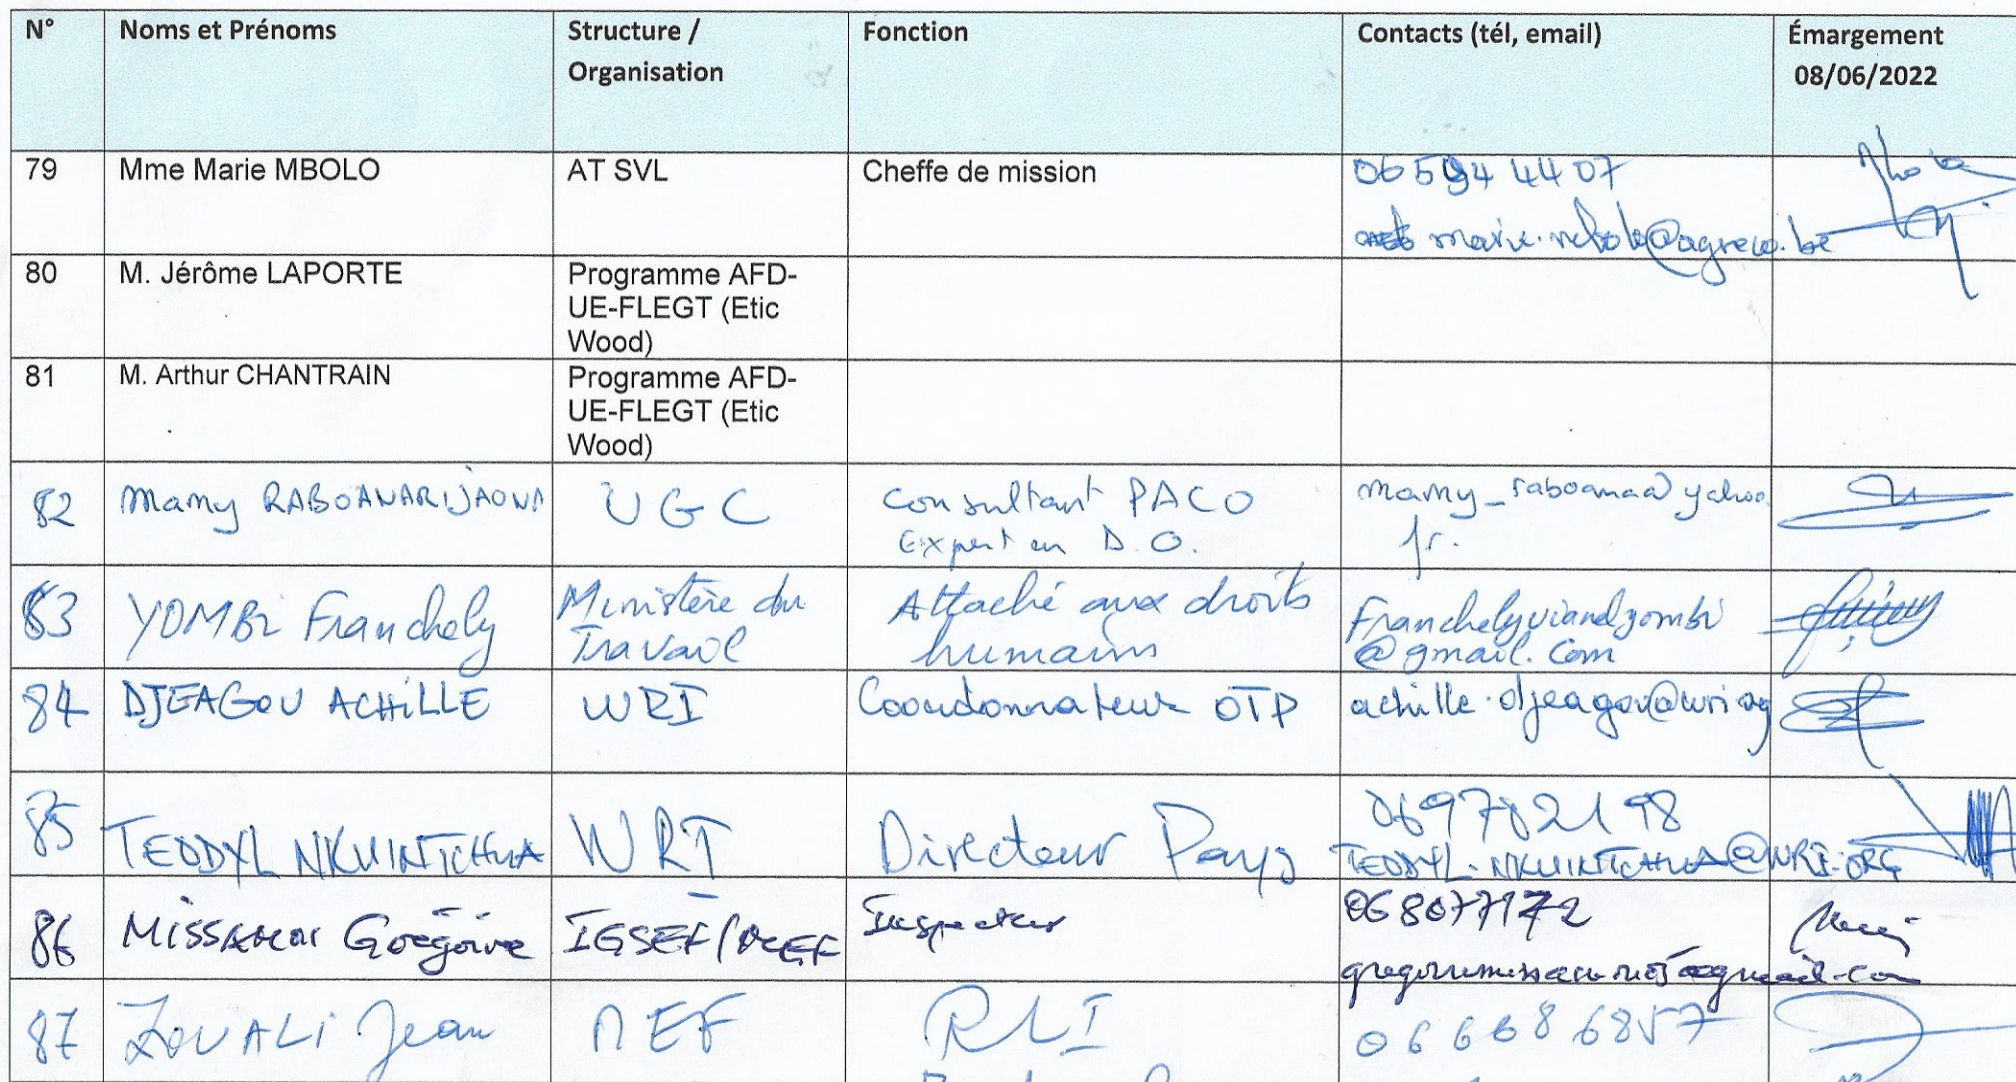 N° Noms et Prénoms Structure / Fonction Contacts (tél, email) Émargement
Organisation 08/06/2022
79 Mme Marie MBOLO AT SVL Cheffe de mission 06 594 44 07
@agreco.be
80 M. Jérôme LAPORTE Programme AFD-
UE-FLEGT (Etic
Wood)
81 M. Arthur CHANTRAIN Programme AFD-
UE-FLEGT (Etic
Wood)
82 Mamy RABOANARIJAONA UGC Consultant PACO mamy_raboana@yahoo
Expert en D.O. fr.
83 YOMBi Franchely Ministère du Attaché aux droits Franchelyviandyombi
Travail humains @gmail.com
84 DJEAGOU ACHiLLE WRI Coordonnateur OTP achille.djeagou@wri.org
85 TEODYL NKUINTCHUA WRI Directeur Pays 069782198
TEODYL.NKUINTCHUA@WRI.ORG
86 Grégoire IGSEF/MEF Inspecteur 068077172
87 ZOUALi Jean MEF RLI 066686857